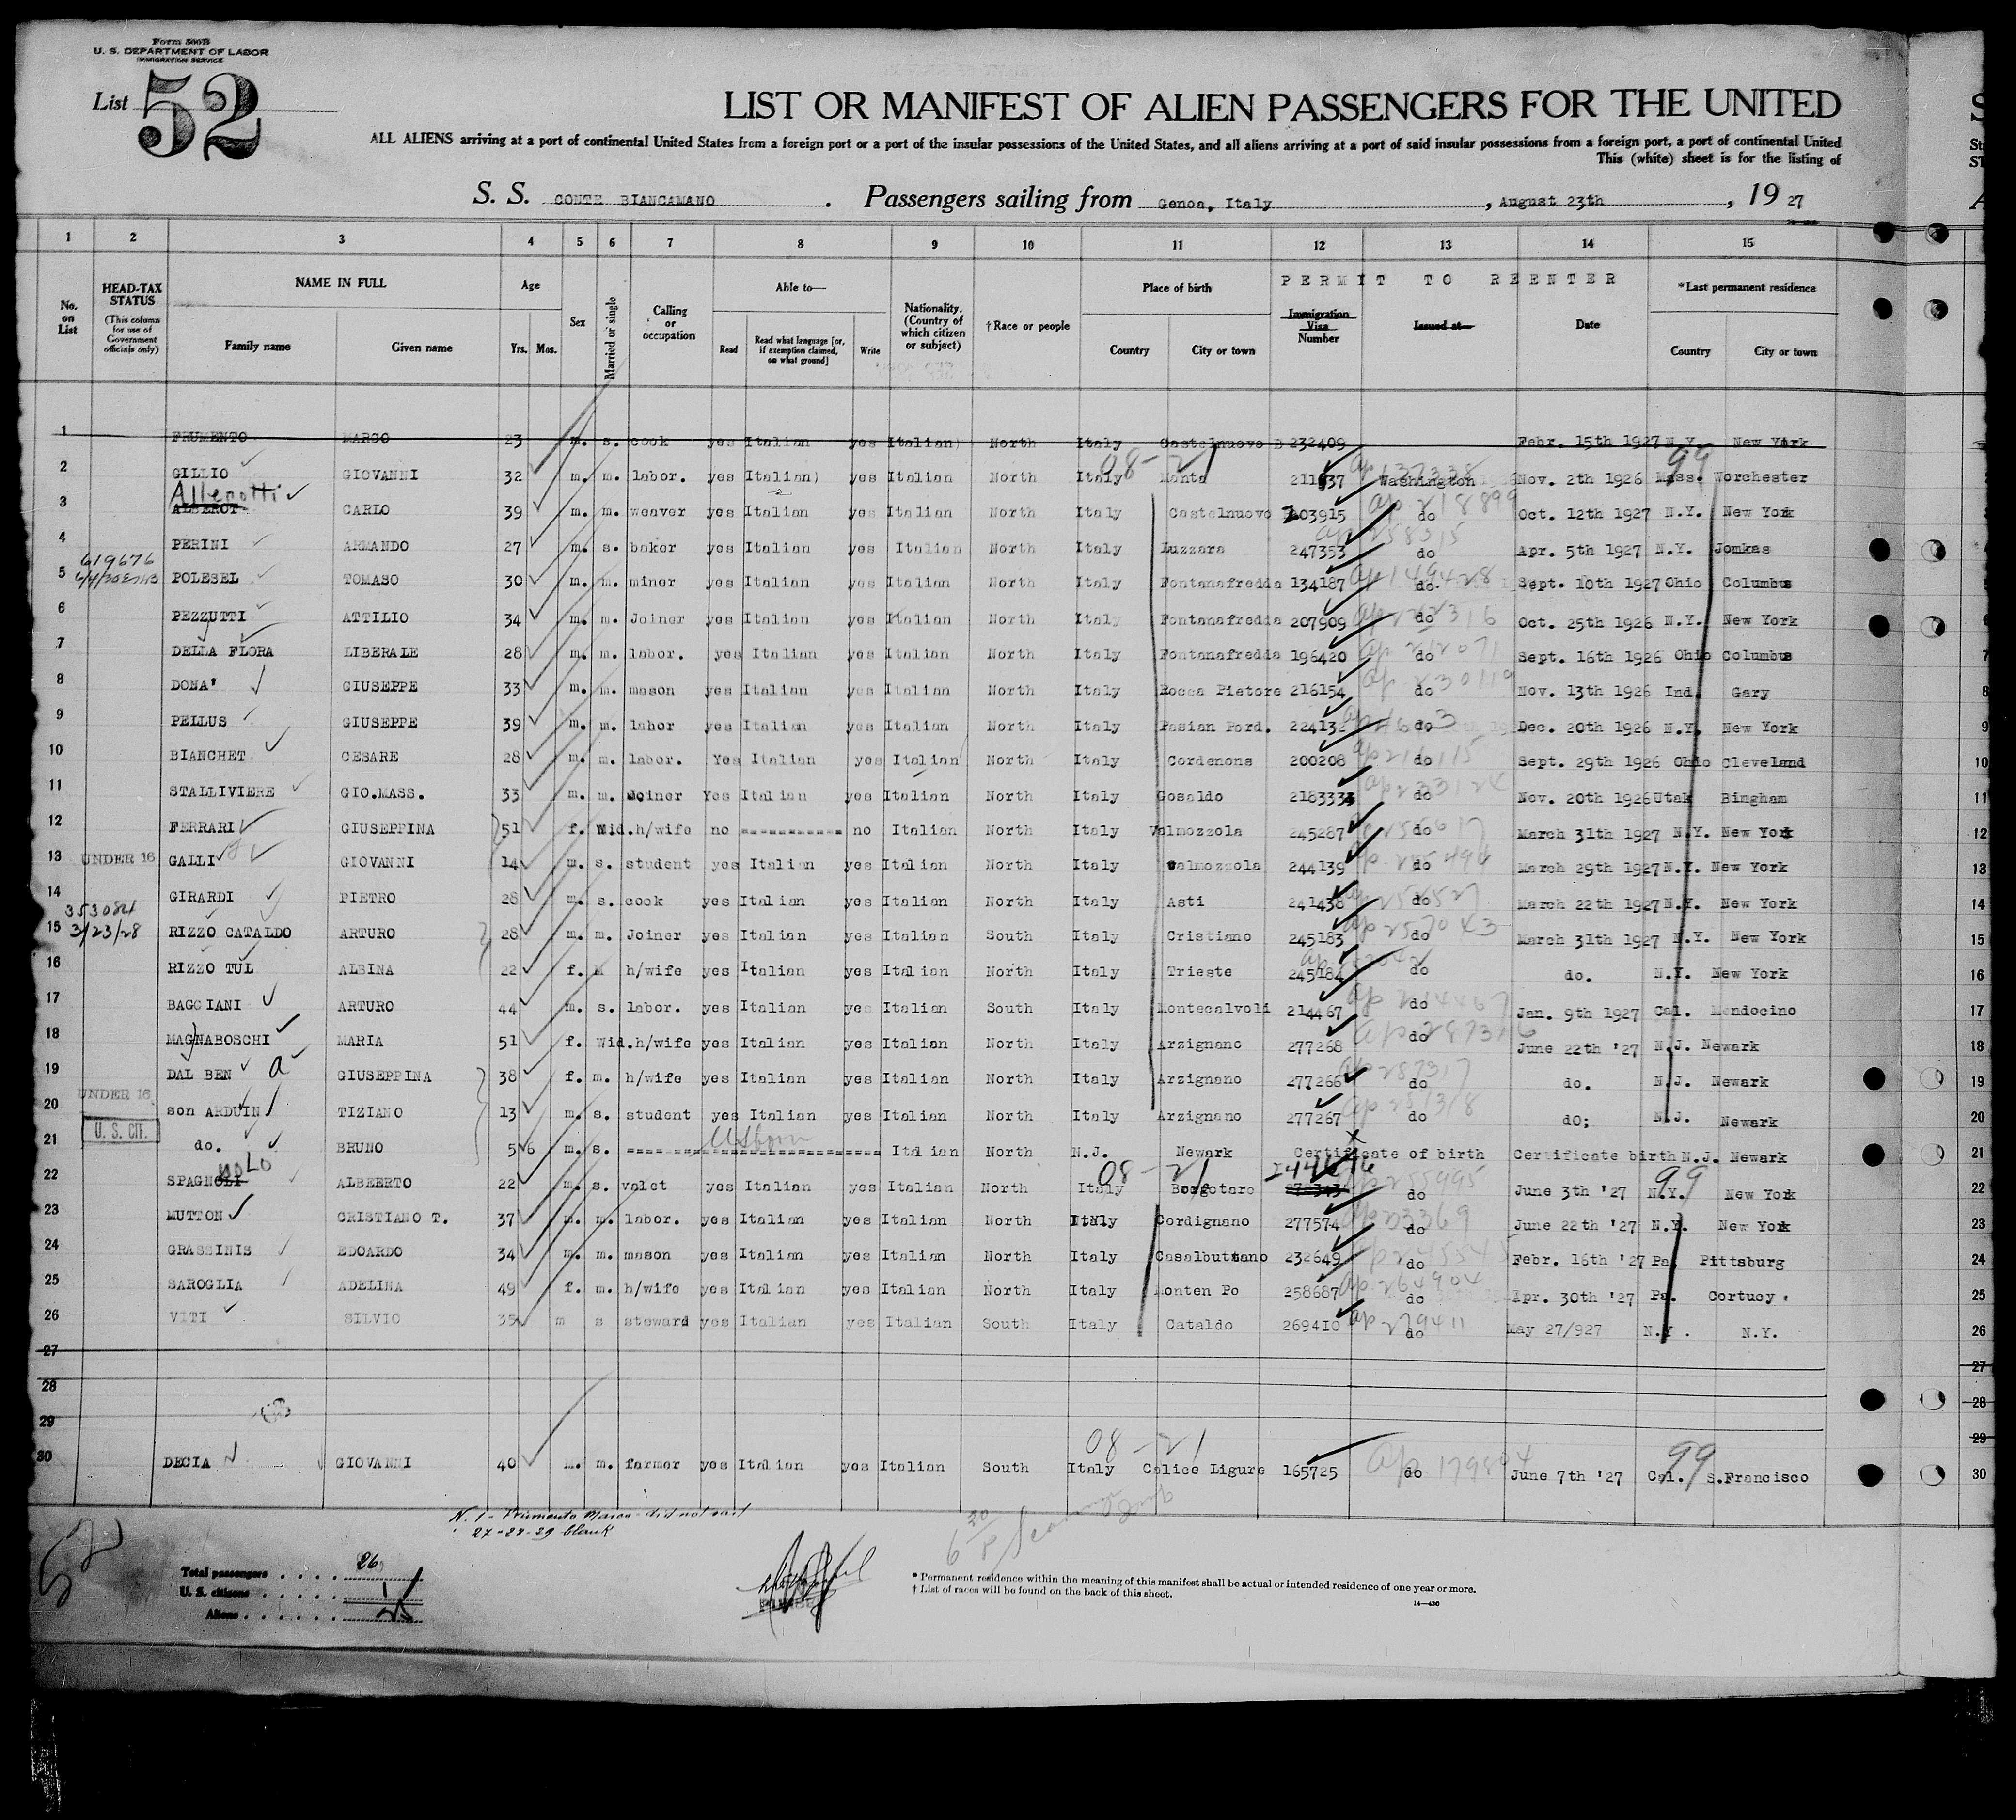 Form 500B
U. S. DEPARTMENT OF LABOR
IMMIGRATION SERVICE
List 52
LIST OR MANIFEST OF ALIEN PASSENGERS FOR THE UNITED
ALL ALIENS arriving at a port of continental United States from a foreign port or a port of the insular possessions of the United States, and all aliens arriving at a port of said insular possessions from a foreign port, a port of continental United
This (white) sheet is for the listing of
S. S. CONTE BIANCAMANO . Passengers sailing from Genoa, Italy , August 23th , 19 27
1 2 3 4 5 6 7 8 9 10 11 12 13 14 15
No. on List
HEAD-TAX STATUS (This column for use of Government officials only)
NAME IN FULL Family name Given name
Age Yrs. Mos.
Sex
Married or single
Calling or occupation
Able to— Read Read what language [or, if exemption claimed, on what ground] Write
Nationality. (Country of which citizen or subject)
† Race or people
Place of birth Country City or town
PERMIT TO REENTER
Immigration Visa Number
Issued at—
Date
* Last permanent residence Country City or town
1 FRUMENTO MARCO 23 m. s. cook yes Italian yes Italian) North Italy Castelnuovo B 232409 Febr. 15th 1927 N.Y. New York
08-21 99
2 GILLIO GIOVANNI 32 m. m. labor. yes Italian) yes Italian North Italy Monta 211637 Washington Nov. 2th 1926 Mass. Worchester
Allerotti
3 ALBEROT CARLO 39 m. m. weaver yes Italian yes Italian North Italy Castelnuovo 203915 do Oct. 12th 1927 N.Y. New York
4 PERINI ARMANDO 27 m. s. baker yes Italian yes Italian North Italy Luzzara 247353 do Apr. 5th 1927 N.Y. Jomkas
619676
5 POLESEL TOMASO 30 m. m. miner yes Italian yes Italian North Italy Fontanafredda 134187 do. Sept. 10th 1927 Ohio Columbus
6 PEZZUTTI ATTILIO 34 m. m. Joiner yes Italian yes Italian North Italy Fontanafredda 207909 do Oct. 25th 1926 N.Y. New York
7 DELLA FLORA LIBERALE 28 m. m. labor. yes Italian yes Italian North Italy Fontanafredda 196420 do Sept. 16th 1926 Ohio Columbus
8 DONA' GIUSEPPE 33 m. m. mason yes Italian yes Italian North Italy Rocca Pietore 216154 do Nov. 13th 1926 Ind. Gary
9 PELLUS GIUSEPPE 39 m. m. labor yes Italian yes Italian North Italy Pasian Pord. 224132 do Dec. 20th 1926 N.Y. New York
10 BIANCHET CESARE 28 m. m. labor. Yes Italian yes Italian North Italy Cordenons 200208 do Sept. 29th 1926 Ohio Cleveland
11 STALLIVIERE GIO.MASS. 33 m. m. Joiner Yes Italian yes Italian North Italy Gosaldo 218333 do Nov. 20th 1926 Utah Bingham
12 FERRARI GIUSEPPINA 51 f. Wid. h/wife no ----------- no Italian North Italy Valmozzola 245287 do March 31th 1927 N.Y. New York
13 UNDER 16 GALLI GIOVANNI 14 m. s. student yes Italian yes Italian North Italy Valmozzola 244139 do March 29th 1927 N.Y. New York
14 GIRARDI PIETRO 28 m. s. cook yes Italian yes Italian North Italy Asti 241436 do March 22th 1927 N.Y. New York
353084
15 3/23/28 RIZZO CATALDO ARTURO 28 m. m. Joiner yes Italian yes Italian South Italy Cristiano 245183 do March 31th 1927 N.Y. New York
16 RIZZO TUL ALBINA 22 f. M h/wife yes Italian yes Italian North Italy Trieste 245184 do do. N.Y. New York
17 BAGGIANI ARTURO 44 m. s. labor. yes Italian yes Italian South Italy Montecalvoli 214467 do Jan. 9th 1927 Cal. Mendocino
18 MAGNABOSCHI MARIA 51 f. Wid. h/wife yes Italian yes Italian North Italy Arzignano 277268 do June 22th '27 N.J. Newark
19 DAL BEN GIUSEPPINA 38 f. m. h/wife yes Italian yes Italian North Italy Arzignano 277266 do do. N.J. Newark
UNDER 16
20 son ARDUIN TIZIANO 13 m. s. student yes Italian yes Italian North Italy Arzignano 277267 do do; N.J. Newark
U. S. CIT.
21 do. BRUNO 5 6 m. s. US born Italian North N.J. Newark Certificate of birth Certificate birth N.J. Newark
08-21 99
22 SPAGNOLI ALBEERTO 22 m. s. valet yes Italian yes Italian North Italy Borgotaro do June 3th '27 N.Y. New York
23 MUTTON CRISTIANO T. 37 m. m. labor. yes Italian yes Italian North Italy Cordignano 277574 do June 22th '27 N.Y. New York
24 GRASSINIS EDOARDO 34 m. m. mason yes Italian yes Italian North Italy Casalbuttano 232649 do Febr. 16th '27 Pa. Pittsburg
25 SAROGLIA ADELINA 49 f. m. h/wife yes Italian yes Italian North Italy Monten Po 258687 do Apr. 30th '27 Pa. Cortucy.
26 VITI SILVIO 35 m s steward yes Italian yes Italian South Italy Cataldo 269410 do May 27/927 N.Y. N.Y.
27
28
29
08-21 99
30 DECIA GIOVANNI 40 m. m. farmer yes Italian yes Italian South Italy Calice Ligure 165725 do June 7th '27 Cal. S.Francisco
N. 1 - Frumento Marco - did not sail
27-28-29 blank
Total passengers . . . . 26
U. S. citizens . . . . . 1
Aliens . . . . . . 25
* Permanent residence within the meaning of this manifest shall be actual or intended residence of one year or more.
† List of races will be found on the back of this sheet.
14—430